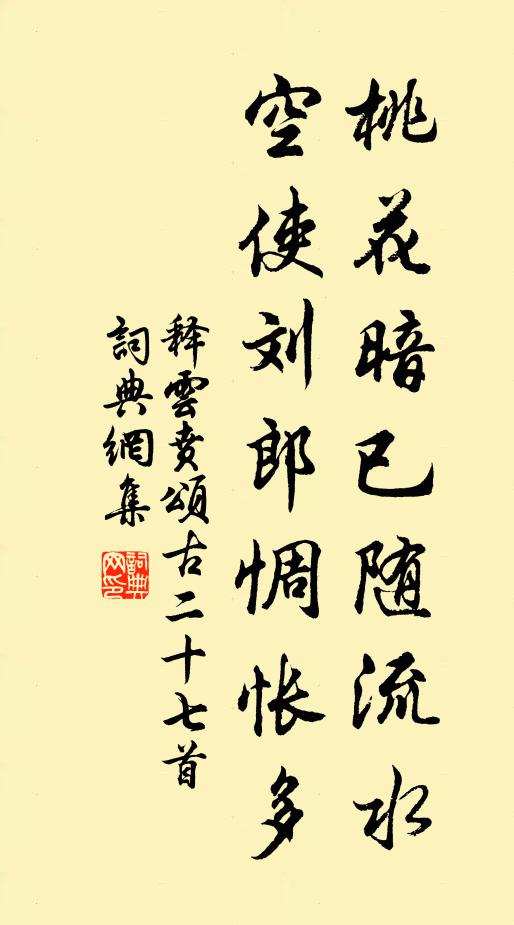 桃花暗已随流水
空使刘郎惆怅多
释雲賁頌古二十七首
詞典網集
詞典网印